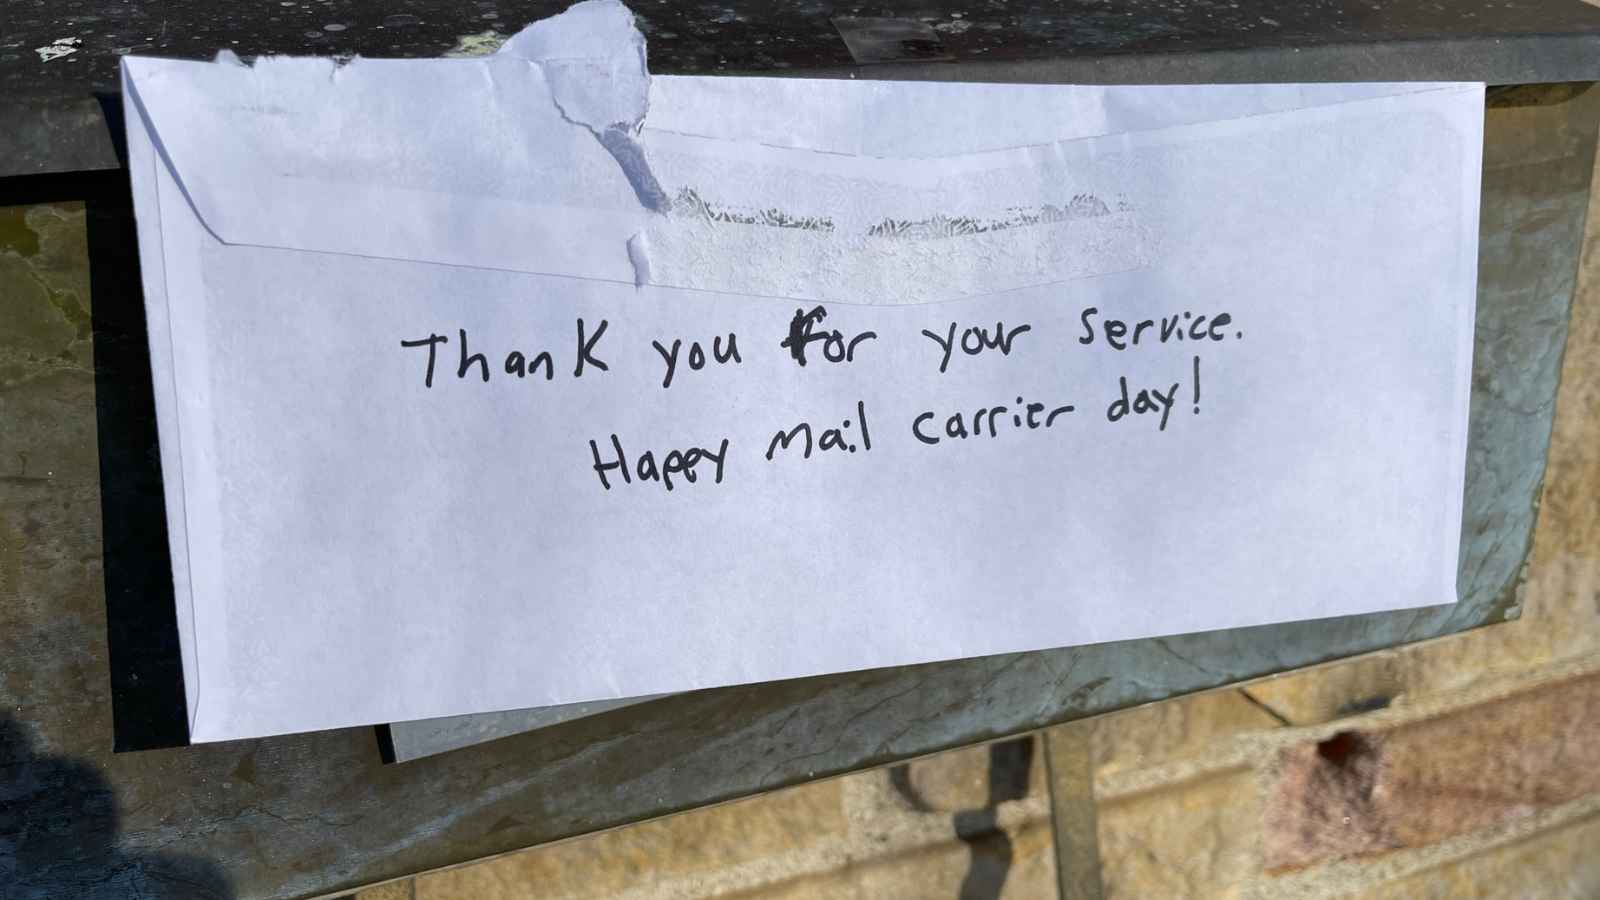 Thank you for your service.
Happy mail carrier day!